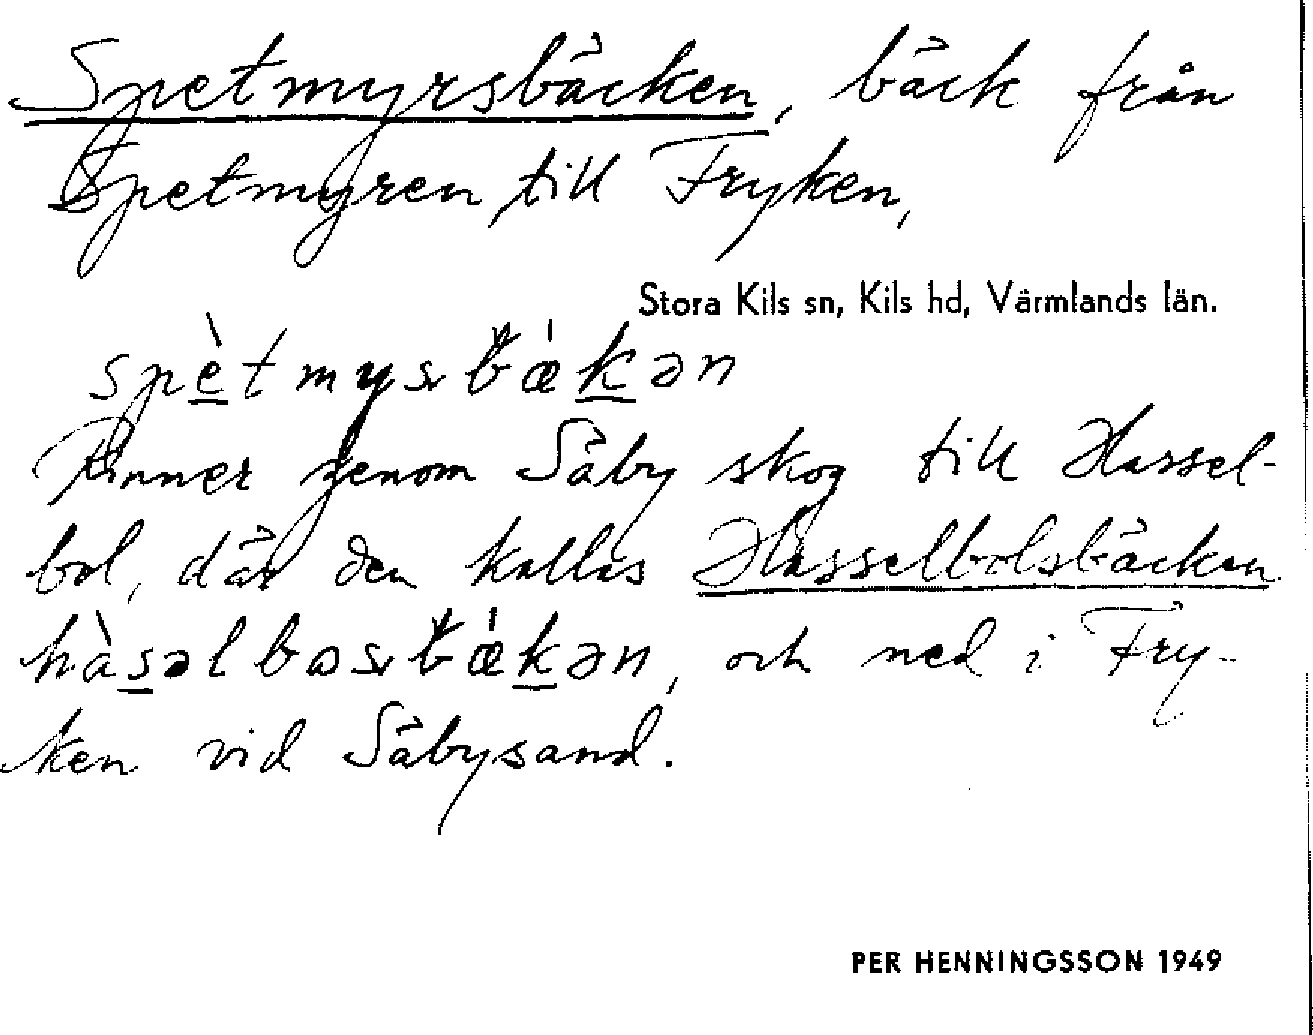 Spetmyrsbäcken, bäck från
Spetmyren, till Fryken,
Stora Kils sn, Kils hd, Värmlands län.
spètmysbǽkən
Rinner genom Säby skog till Hassel-
bol, där den kallas Hasselbolsbäcken
hàsəlbosbǽkən, och ned i Fry-
ken vid Säbysand.
PER HENNINGSSON 1949